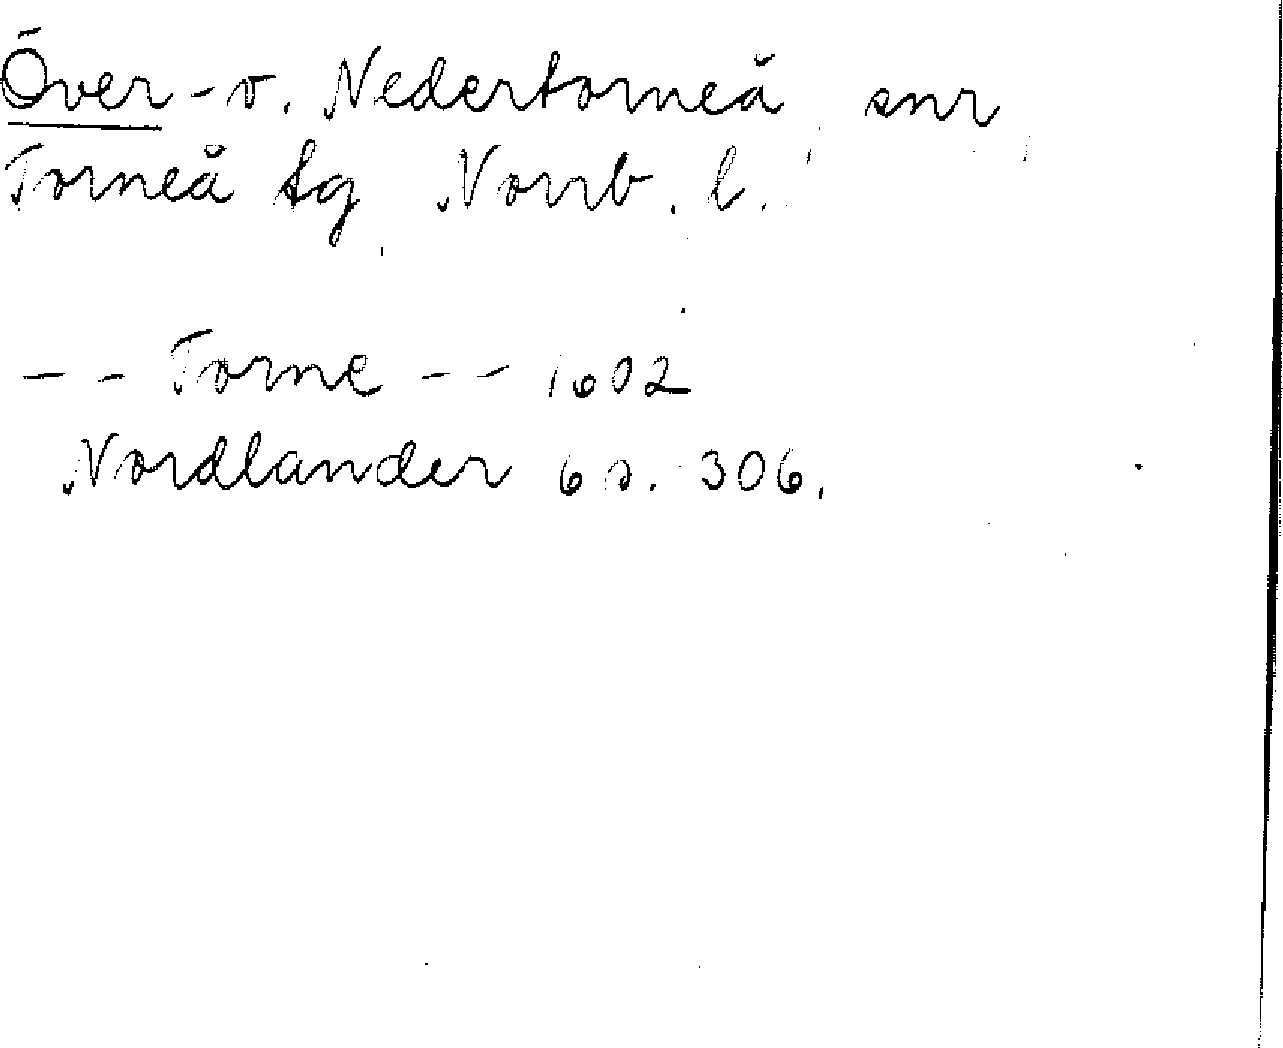 Över- o. Nedertorneå, snr,
Torneå tg, Norrb. l.
-- Torne -- 1602
Nordlander 6 s. 306.